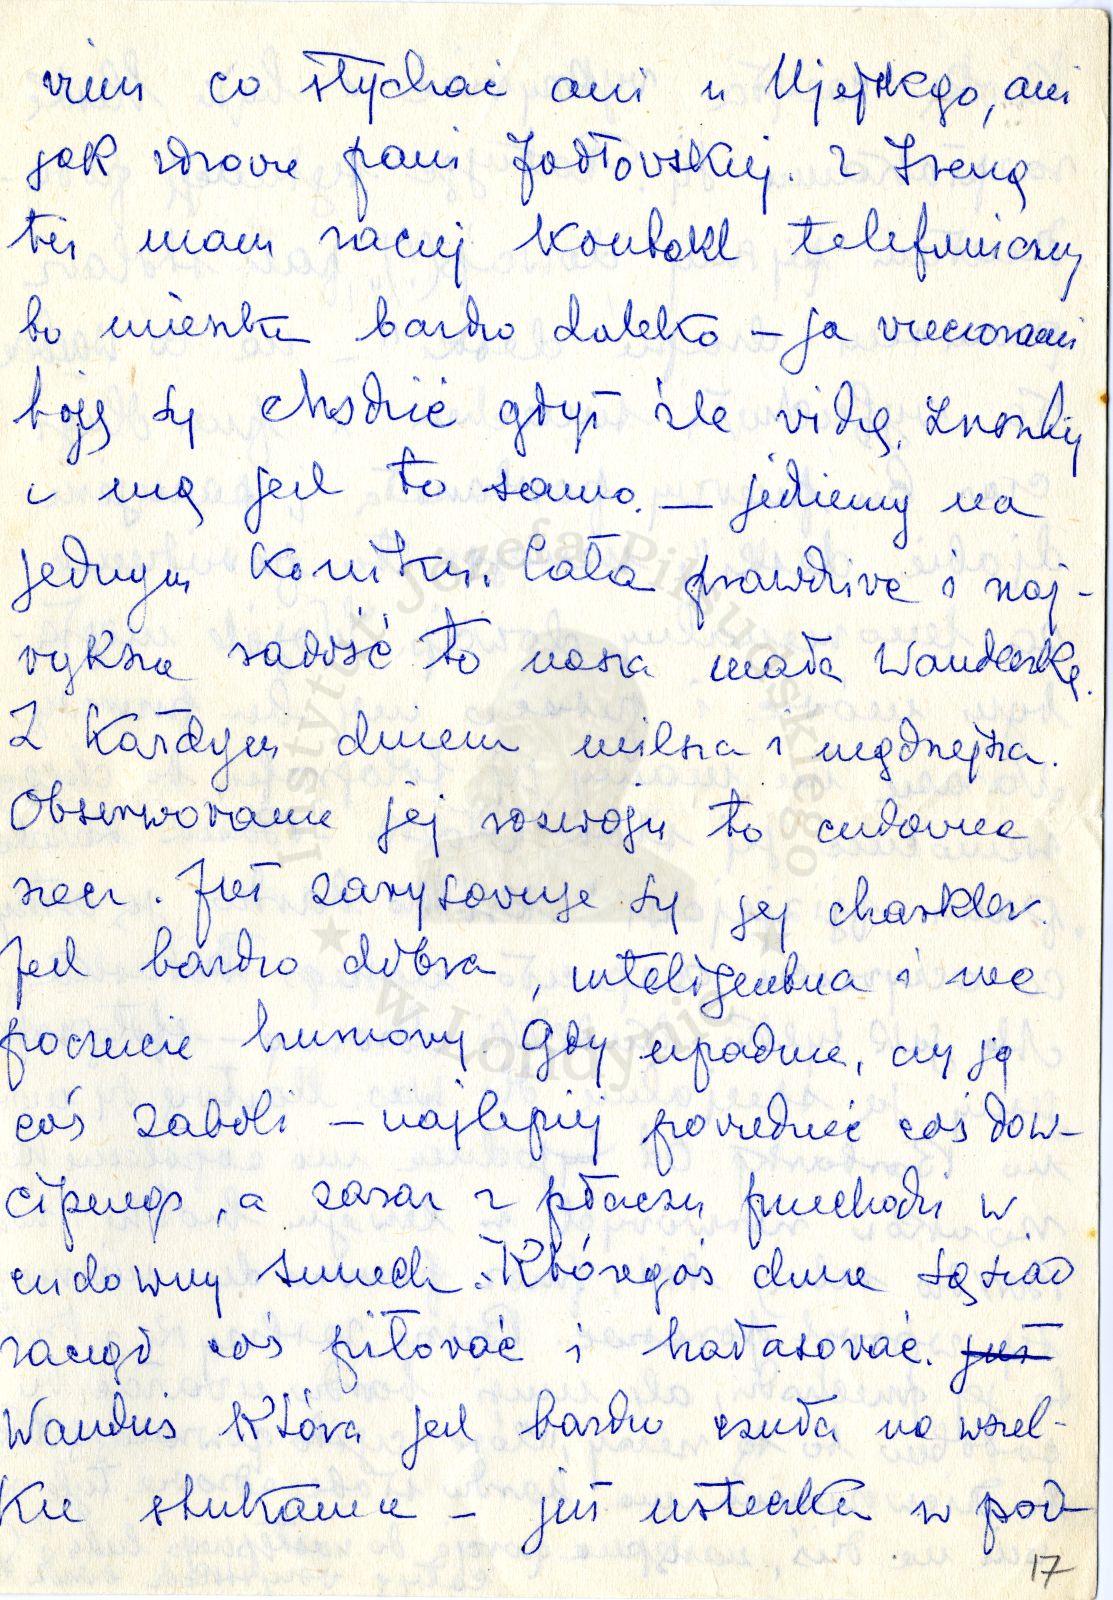 wiem co słychać ani u Ujejskego, ani
jak zdrowie pani Jodłovskiej. Z Ireną
też mam raczej kontakt telefoniczny
bo mieszka bardzo daleko – ja wieczorami
boję się chodzić gdyż źle vidzę. Z Ireną
i nią jest to samo. – jedziemy na
jednym koniku. Cała prawdziva i naj-
vyższa radość to nasza mała Wandeczka.
Z każdym dniem milsza i mądrzejsza.
Obserwovanie jej rozwoju to cudovna
rzecz. Już zarysovuje się jej charakter.
Jest bardzo dobra, inteligentna i ma
poczucie humoru. Gdy upadnie, czy ją
coś zaboli – najlepiej povedzieć coś dow-
cipnego, a zaraz z płaczu przechodzi w
cudowny śmiech. Któregoś dnia sąsiad
zaczął coś piłovać i hałasovać. już
Wandzia która jest bardzo czuła na wszel-
kie stukania – już usteczka w pod-
17
Instytut Józefa Piłsudskiego
w Londynie